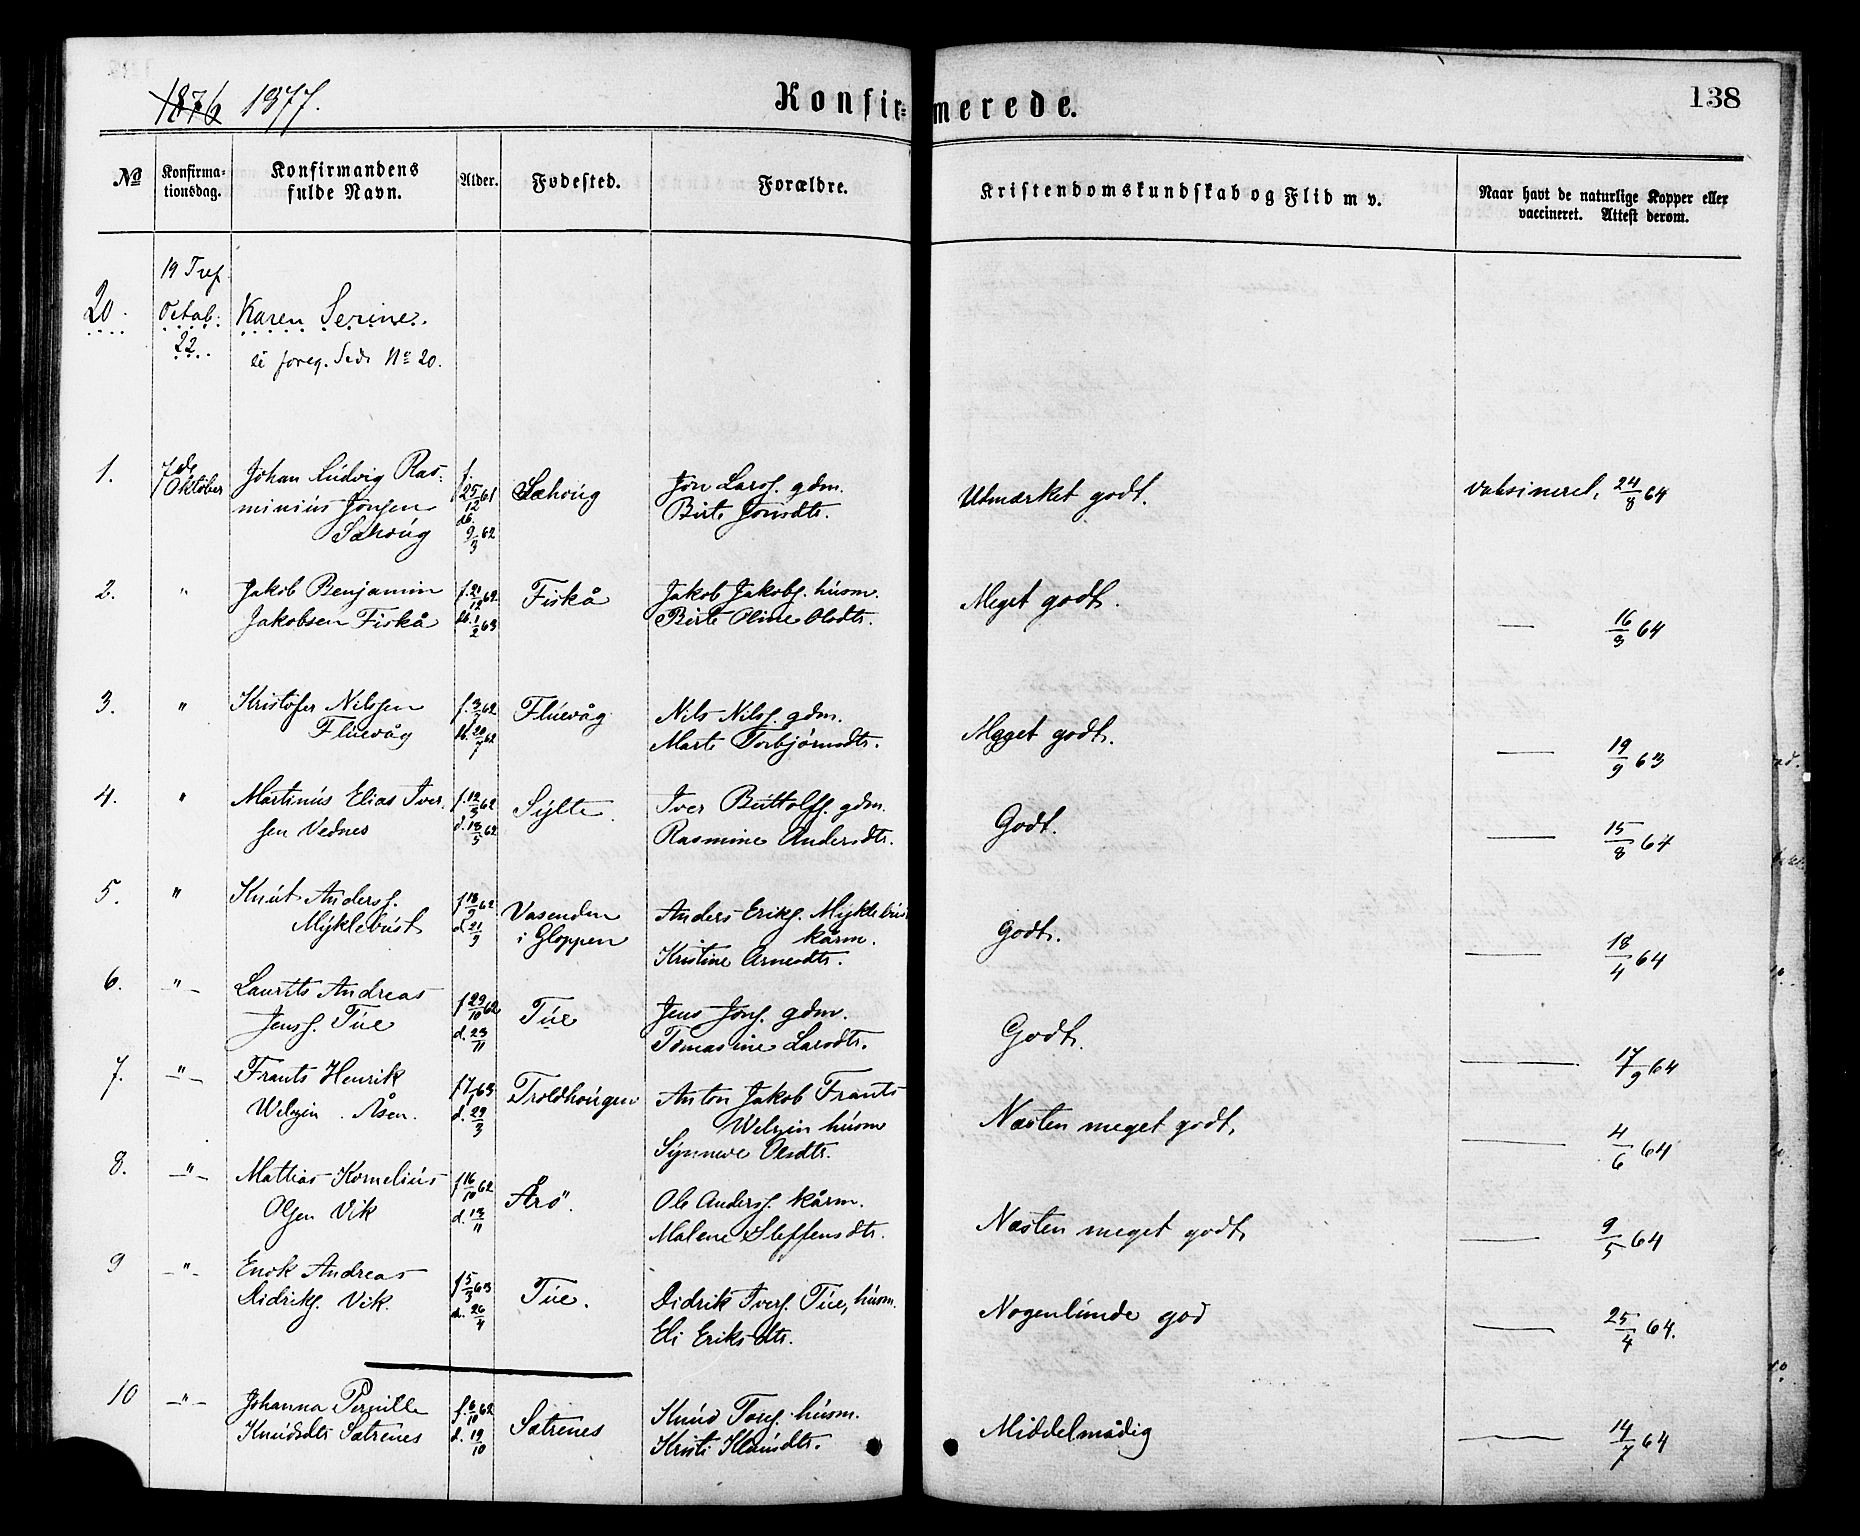 1876 1877.
Konfirmerede.
138
No
Konfirmationsdag.
Konfirmandens fulde Navn.
Alder.
Fødested.
Forældre.
Kristendomskundskab og Flid m v.
Naar havt de naturlige Kopper eller vaccineret. Attest derom.
20. 19 Tref. Octob: 22. Karen Serine.
se foreg. Side No 20.
1. 7de Oktober Johan Ludvig Ras- f. 25/12 61 Sæhoug Jon Larss. gdm. Udmærket godt. Vaksineret. 24/8 64
minius Jonsen db. Birte Jonsdtr.
Sæhoug 9/3 62
2. " Jakob Benjamin f. 21/12 62 Fiskå Jakob Jakobs. husm. Meget godt.
Jakobsen Fiskå db. 1/2 63 Birte Oline Olsdtr. — 16/3 64
3. " Kristofer Nilssen f. 3/7 62 Fluevåg Nils Nilss. gdm. Meget godt.
Fluevåg db. 20/7 62 Marte Torbjørnsdtr. — 19/9 63
4. " Martinus Elias Iver- f. 12/3 62 Sylte. Iver Buttolfs. gdm. Godt.
sen Vednes d. 18/5 62 Rasmine Andersdtr. — 15/8 64
5. " Knut Anders. f. 18/9 62 Vasenden Anders Eriks. Myklebust Godt.
Myklebust d. 21/9 i Gloppen kårm. — 18/4 64
Kristine Arnesdtr.
6. -"- Laurits Andreas f 29/10 62 Tue Jens Jons. gdm. Godt.
Jenss. Tue d. 23/11 Tomasine Larsdtr. — 17/9 64
7. -"- Frants Henrik f 7/1 63 Troldhougen Anton Jakob Frants Næsten meget godt.
Welzin. Åsen. d. 29/3 Welzin husm — 4/6 64
Synneve Olsdtr.
8. -"- Mattias Kornelius f 16/10 62 Årö. Ole Anders. kårm. Næsten meget godt.
Olsen Vik d. 13/11 Malene Steffensdtr. — 9/5 64
9 -"- Enok Andreas f 5/3 63 Tue. Didrik Ivers. Tue, husm. Nogenlunde god
Didriks. Vik. d. 26/4 Eli Eriksdtr. — 25/4 64.
10 -"- Johanna Pernille f. 6/10 62 Sætrenes Knud husm. Middelmådig
Knudsdtr Sætrenes d. 19/10 Kristi — 14/7 64